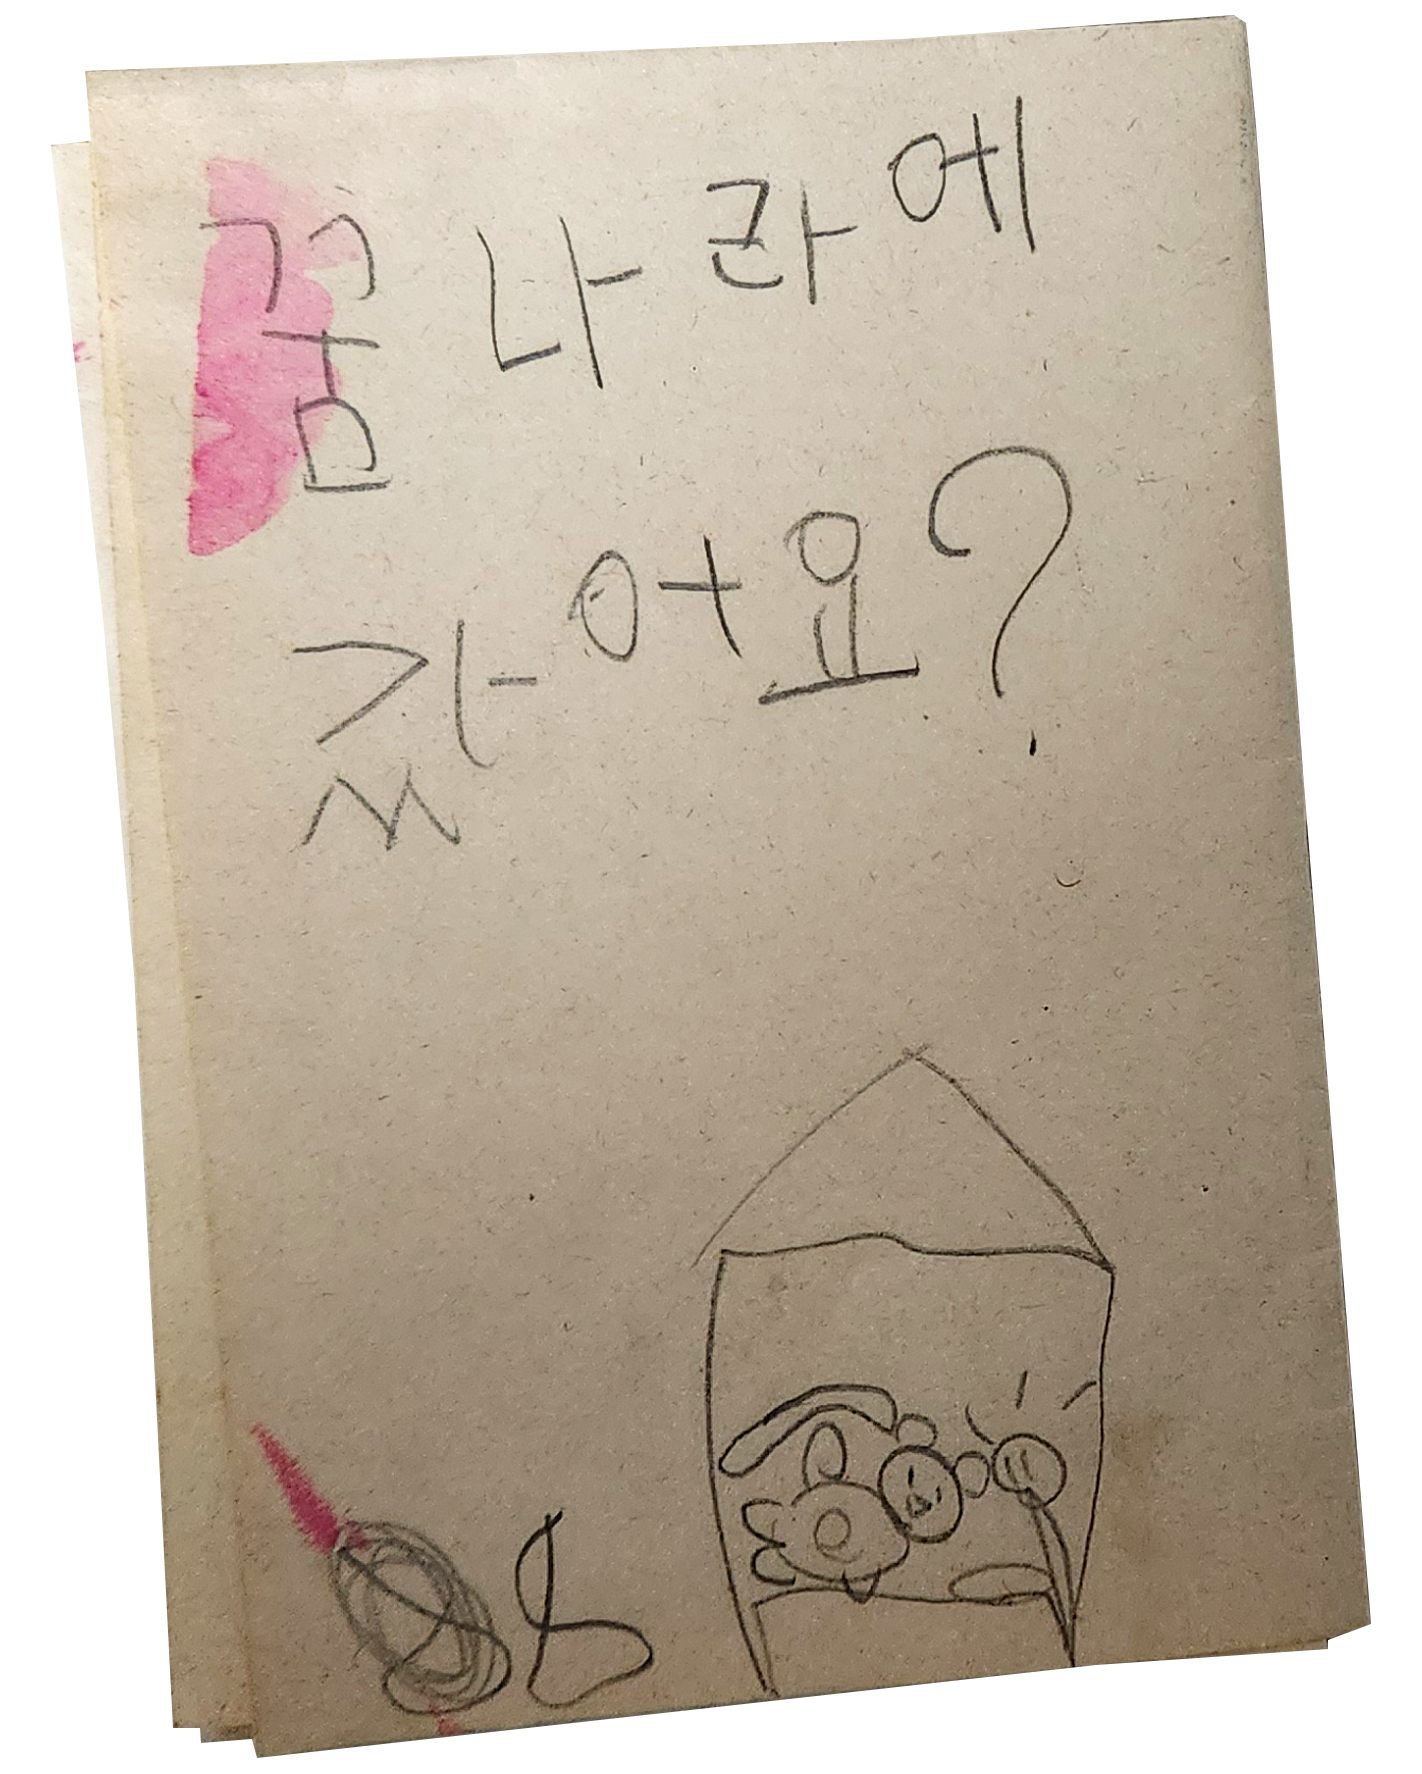 꿈나라에
갔어요?